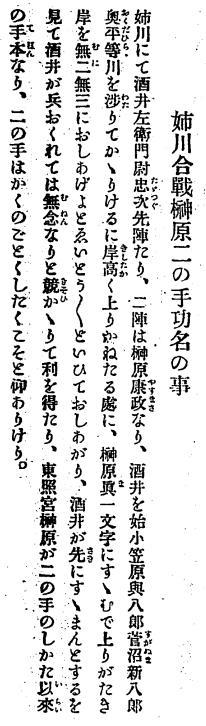 姉川合戰榊原二の手功名の事
姉川にて酒井左衛門尉忠次先陣たり、二陣は榊原康政なり、酒井を始小笠原與八郎菅沼新八郎
奥平等川を渉りてかゝりけるに岸高く上りかねたる處に、榊原眞一文字にすゝむで上りがたき
岸を無二無三におしあげよとゑいとう〳〵といひておしあがり、酒井が先にすゝまんとするを
見て酒井が兵おくれては無念なりと競かゝりて利を得たり、東照宮榊原が二の手のしかた以來
の手本なり、二の手はかくのごとくしたくこそと仰ありけり。